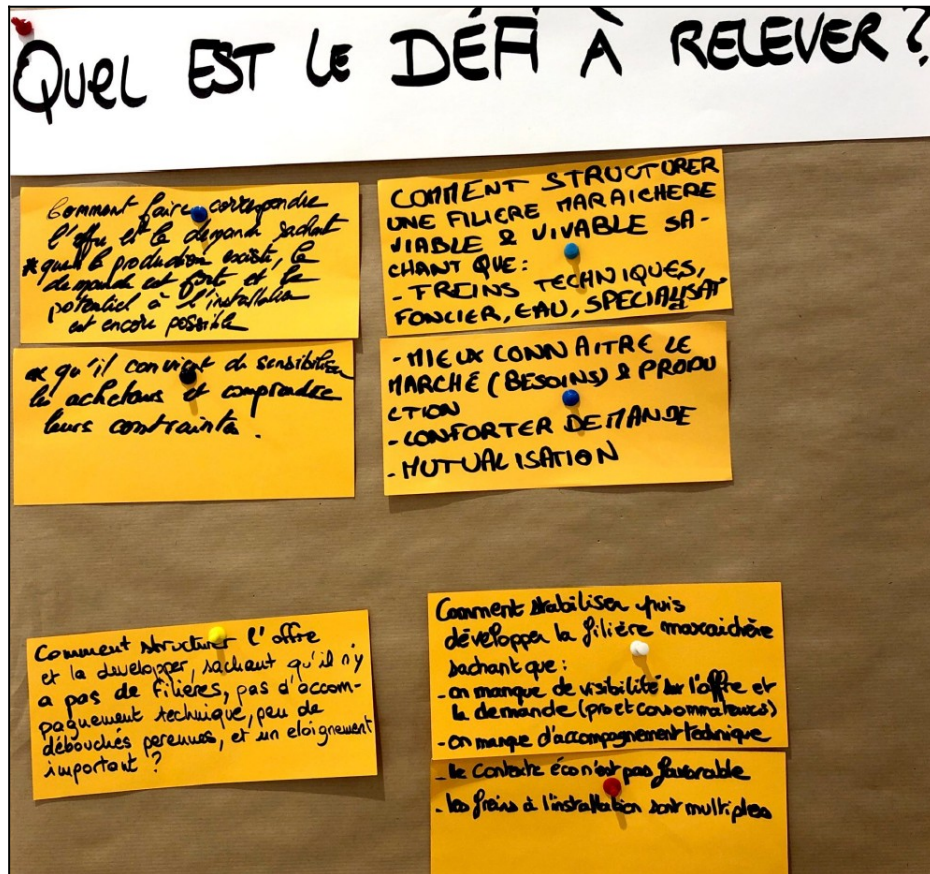 QUEL EST LE DÉFI À RELEVER ?
Comment faire correspondre
l'offre et la demande sachant
* que la production existe, la
demande est forte et le
potentiel à l'installation
est encore possible
* qu'il convient de sensibiliser
les acheteurs et comprendre
leurs contraintes.
COMMENT STRUCTURER
UNE FILIERE MARAICHERE
VIABLE & VIVABLE SA-
CHANT QUE :
- FREINS TECHNIQUES,
FONCIER, EAU, SPECIALISAT
- MIEUX CONNAITRE LE
MARCHÉ (BESOINS) & PRODU
CTION
- CONFORTER DEMANDE
- MUTUALISATION
Comment structurer l'offre
et la developper, sachant qu'il n'y
a pas de filières, pas d'accom-
pagnement technique, peu de
débouchés perennes, et un eloignement
important ?
Comment stabiliser puis
développer la filière maraichère
sachant que :
- on manque de visibilité sur l'offre et
la demande (pro et consommateurs)
- on manque d'accompagnement technique
- le contexte éco n'est pas favorable
- les freins à l'installation sont multiples